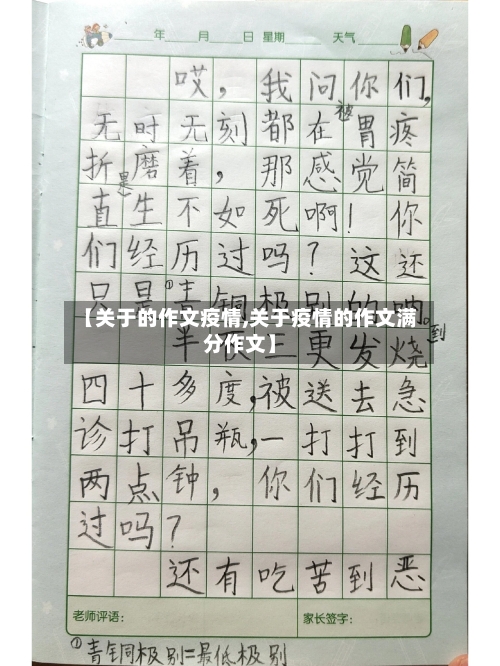 年 月 日 星期 天气
哎，我问你们，
无时无刻都在被胃疼
折磨着，那感觉简
直是生不如死啊！你
们经历过吗？这还
只是①青铜极别的呐。
【关于的作文疫情,关于疫情的作文满
分作文】
半夜三更发烧到
四十多度，被送去急
诊打吊瓶，一打打到
两点钟，你们经历
过吗？
还有吃苦到恶
老师评语： 家长签字：
①青铜极别=最低极别